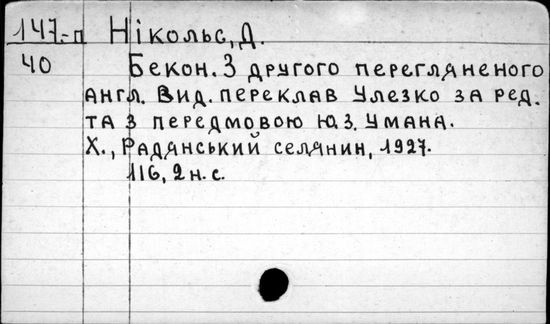 147-п Нікольс, Д.
40 Бекон. З другого перегляненого
англ. Вид. переклав Улезко за ред.
та з передмовою Ю.З. Умана.
Х., Радянський селянин, 1927.
116, 2 н. с.